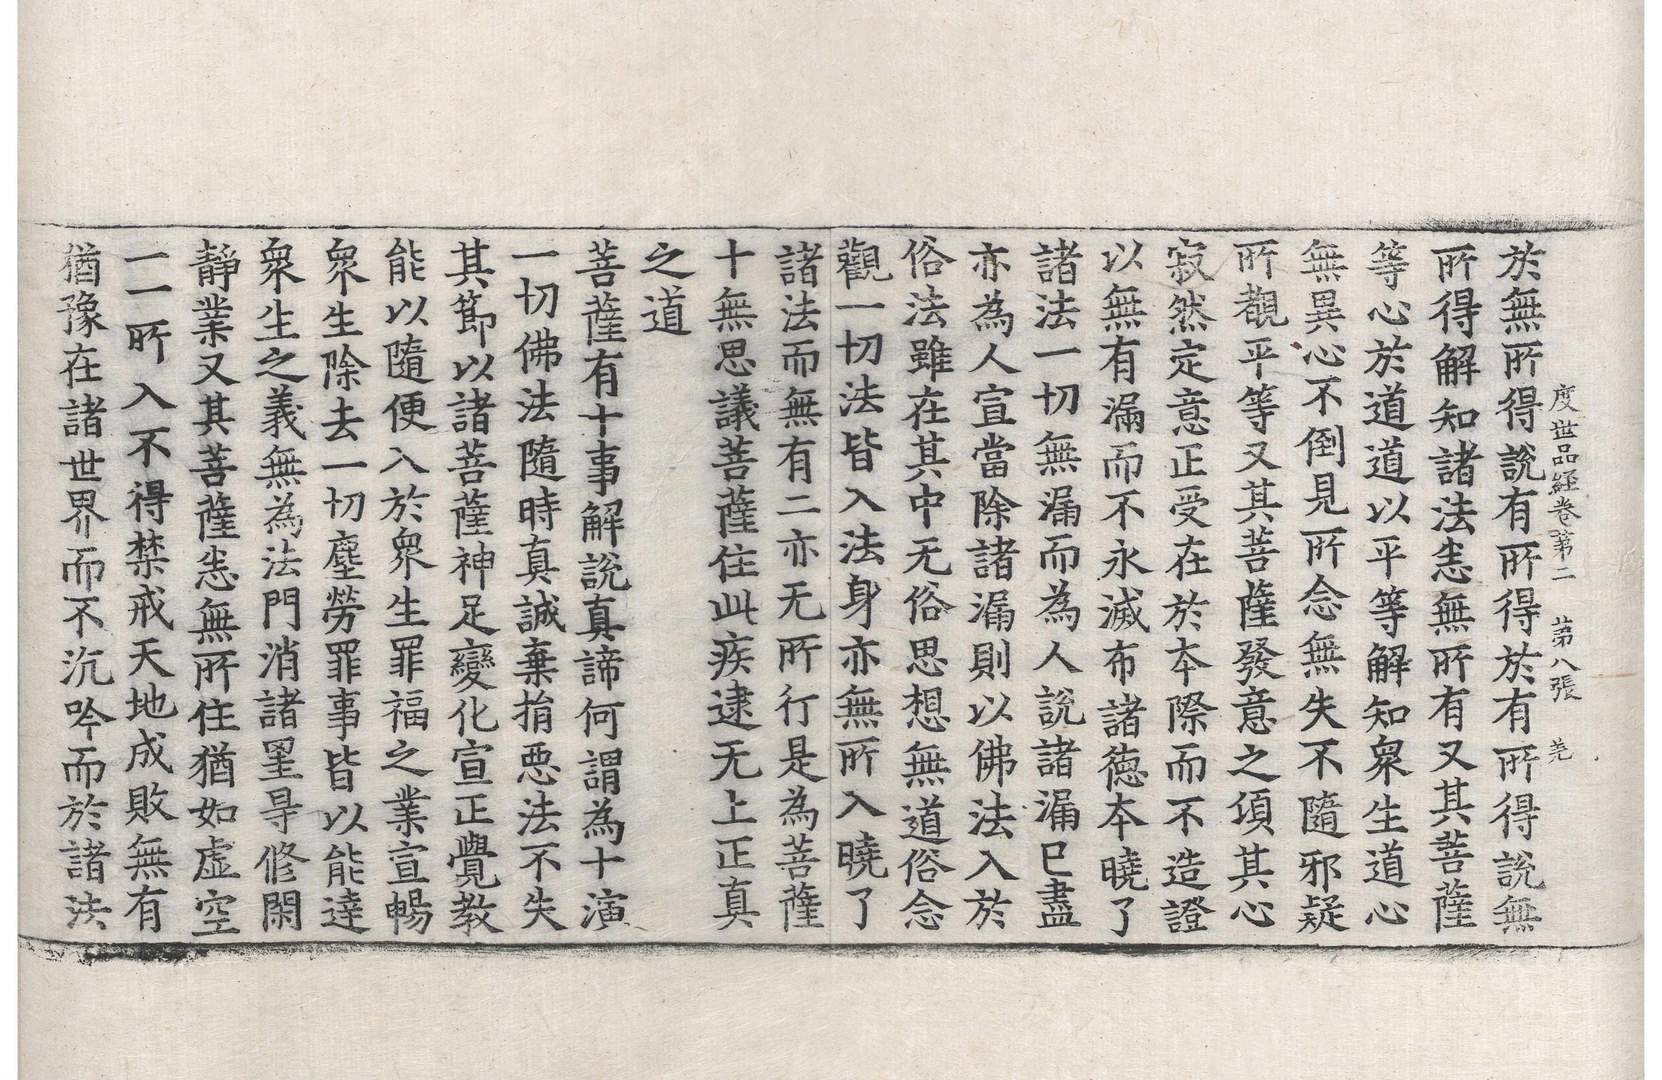 度世品経卷第二 第八張 羌
於無所得說有所得於有所得說無
所得解知諸法恚無所有又其菩薩
等心於道道以平等解知衆生道心
無異心不倒見所念無失不隨邪疑
所觀平等又其菩薩發意之頃其心
寂然定意正受在於本際而不造證
以無有漏而不永滅布諸德本曉了
諸法一切無漏而為人說諸漏已盡
亦為人宣當除諸漏則以佛法入於
俗法雖在其中无俗思想無道俗念
觀一切法皆入法身亦無所入曉了
諸法而無有二亦无所行是為菩薩
十無思議菩薩住此疾逮无上正真
之道
菩薩有十事解說真諦何謂為十演
一切佛法隨時真誠棄捐惡法不失
其節以諸菩薩神足變化宣正覺教
能以隨便入於衆生罪福之業宣暢
衆生除去一切塵勞罪事皆以能達
衆生之義無為法門消諸罣㝵修閑
靜業又其菩薩恚無所住猶如虛空
一一所入不得禁戒天地成敗無有
猶豫在諸世界而不沉吟而於諸法